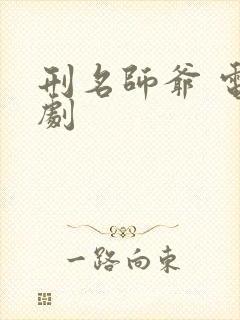 刑名師爺 電
劇
一路向東